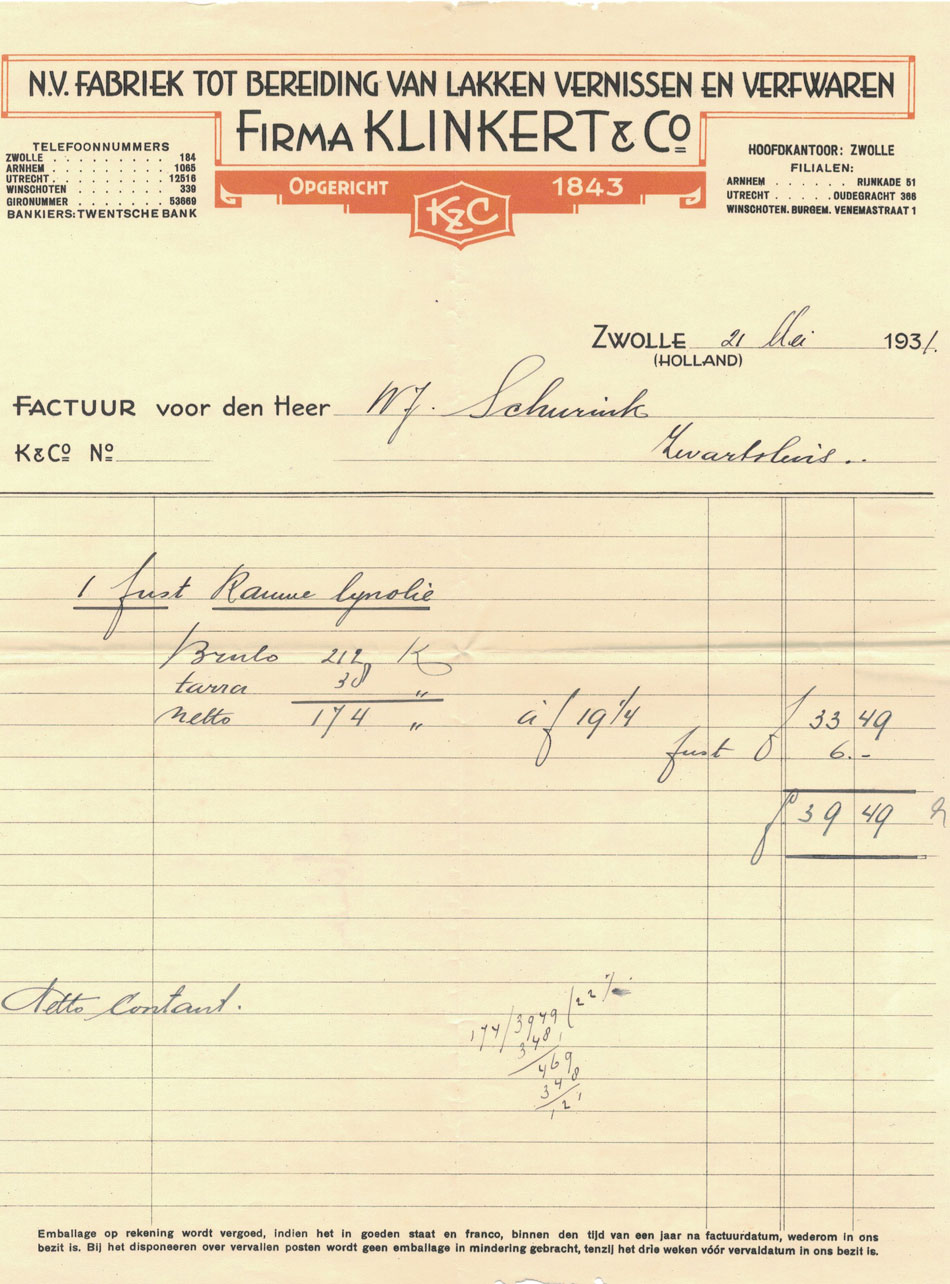 N.V. FABRIEK TOT BEREIDING VAN LAKKEN VERNISSEN EN VERFWAREN
FIRMA KLINKERT & Co
OPGERICHT 1843
K&C
TELEFOONNUMMERS
ZWOLLE . . . . . . . . . 184
ARNHEM . . . . . . . . 1065
UTRECHT . . . . . . . . 12516
WINSCHOTEN . . . . . . 339
GIRONUMMER . . . . . . 53669
BANKIERS: TWENTSCHE BANK
HOOFDKANTOOR: ZWOLLE
FILIALEN:
ARNHEM . . . . . . . RIJNKADE 51
UTRECHT . . . . . OUDEGRACHT 366
WINSCHOTEN. BURGEM. VENEMASTRAAT 1
ZWOLLE 21 Mei 1931.
(HOLLAND)
FACTUUR voor den Heer WJ. Schurink
K&Co No Zwartsluis..
1 fust Rauwe lynolie
Bruto 212 K
tarra 38 "
netto 174 " à f 19 1/4 f 33 49
fust f 6.-
f 39 49
Netto Contant.
174/3949/22
348
469
348
121
Emballage op rekening wordt vergoed, indien het in goeden staat en franco, binnen den tijd van een jaar na factuurdatum, wederom in ons
bezit is. Bij het disponeeren over vervallen posten wordt geen emballage in mindering gebracht, tenzij het drie weken vóór vervaldatum in ons bezit is.